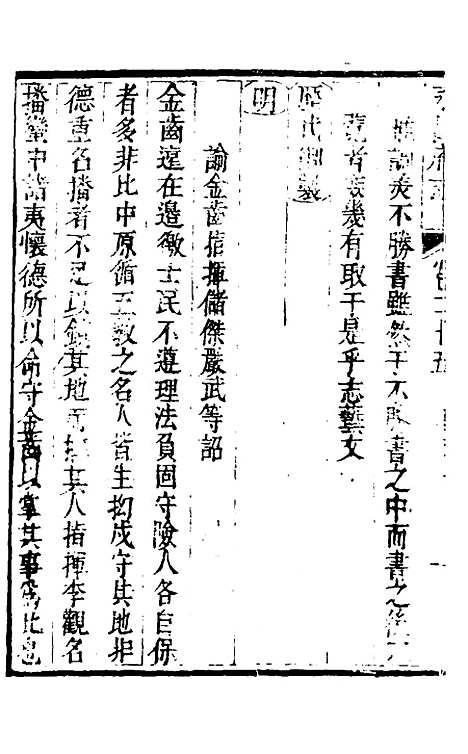 卷之二十五
不勝書雖然于不勝書之中而書之
覽者幾有取于是乎志藝文
歷代御製
明
諭金齒指揮儲傑嚴武等詔
金齒遠在邊徼士民不遵理法負固守險人各自保
者多非比中原循五教之名人皆生拘戍守其地非
德重名播者不足以鎮其地而掖其人指揮李觀名
播蠻中諸夷懷德所以命守金齒以掌其事爲此也